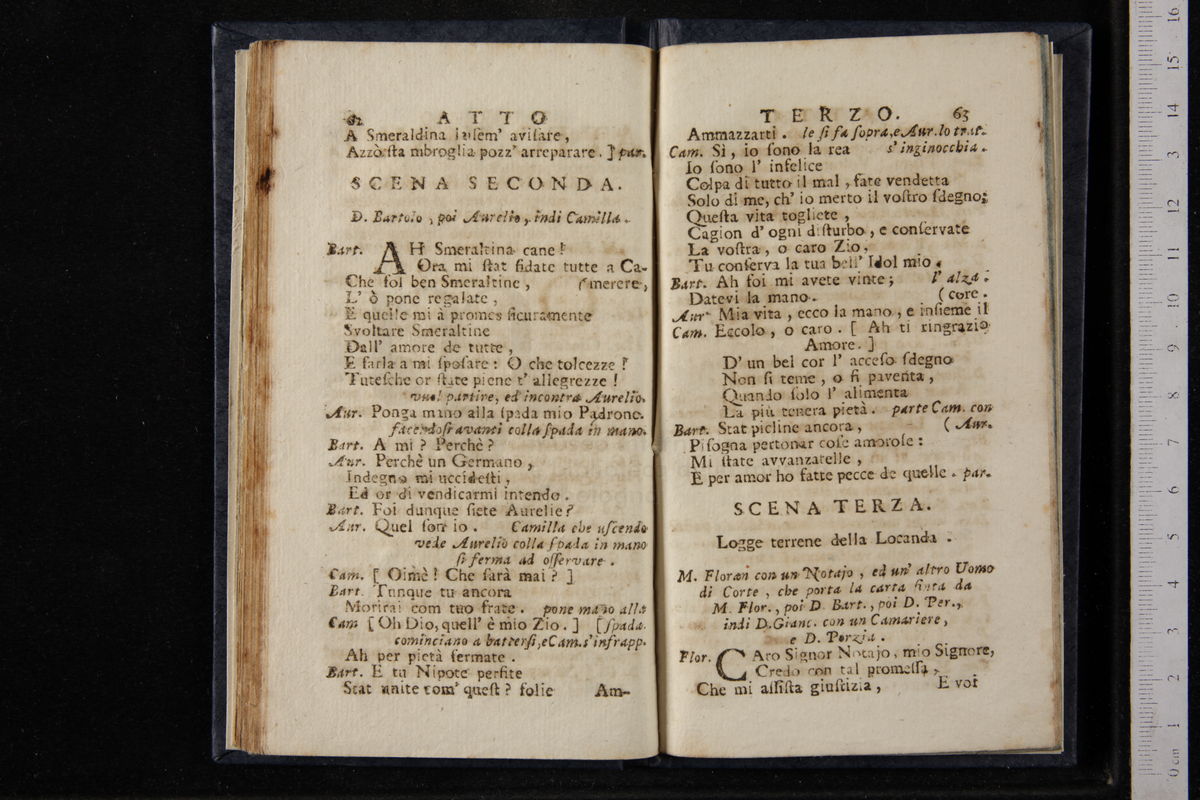 62 ATTO
A Smeraldina ſuſem' aviſare,
Azzò ſta mbroglia pozz' arreparare. ] par.
SCENA SECONDA.
D. Bartolo, poi Aurelio, indi Camilla.
Bart. AH Smeraltina cane!
Ora mi ſtat fidate tutte a Ca-
Che foi ben Smeraltine, (merere,
L' ò pone regalate,
E quelle mi à promes ſicuramente
Svoltare Smeraltine
Dall' amore de tutte,
E farla a mi ſpoſare: O che tolcezze!
Tuteſche or ſtate piene t' allegrezze!
vuol partire, ed incontra Aurelio.
Aur. Ponga mano alla ſpada mio Padrone.
facendoſi avanti colla ſpada in mano.
Bart. A mi? Perchè?
Aur. Perchè un Germano,
Indegno mi uccideſti,
Ed or di vendicarmi intendo.
Bart. Foi dunque ſiete Aurelie?
Aur. Quel ſon io. Camilla che uſcendo
vede Aurelio colla ſpada in mano
ſi ferma ad oſſervare.
Cam. [ Oimè! Che ſarà mai? ]
Bart. Tunque tu ancora
Morirai com tuo frate. pone mano alla
Cam [ Oh Dio, quell' è mio Zio. ] [ſpada.
cominciano a batterſi, e Cam. s'infrapp.
Ah per pietà fermate.
Bart. E tu Nipote perfite
Stat unite com' queſt? folie Am-
TERZO. 63
Ammazzarti. le ſi fa ſopra, e Aur. lo trat.
Cam. Sì, io ſono la rea s' inginocchia.
Io ſono l' infelice
Colpa di tutto il mal, fate vendetta
Solo di me, ch' io merto il voſtro ſdegno;
Queſta vita togliete,
Cagion d' ogni diſturbo, e conſervate
La voſtra, o caro Zio,
Tu conſerva la tua bell' Idol mio.
Bart. Ah foi mi avete vinte; l' alza.
Datevi la mano. (core.
Aur Mia vita, ecco la mano, e inſieme il
Cam. Eccolo, o caro. [ Ah ti ringrazio
Amore. ]
D' un bel cor l' acceſo ſdegno
Non ſi teme, o ſi paventa,
Quando ſolo l' alimenta
La più tenera pietà. parte Cam. con
Bart. Stat picline ancora, ( Aur.
Piſogna pertonar coſe amoroſe:
Mi ſtate avvanzatelle,
E per amor ho fatte pecce de quelle. par.
SCENA TERZA.
Logge terrene della Locanda.
M. Floran con un Notajo, ed un' altro Uomo
di Corte, che porta la carta finta da
M. Flor., poi D. Bart., poi D. Per.,
indi D. Gianc. con un Camariere,
e D. Porzia.
Flor. CAro Signor Notajo, mio Signore,
Credo con tal promeſſa,
Che mi aſſiſta giuſtizia, E voi